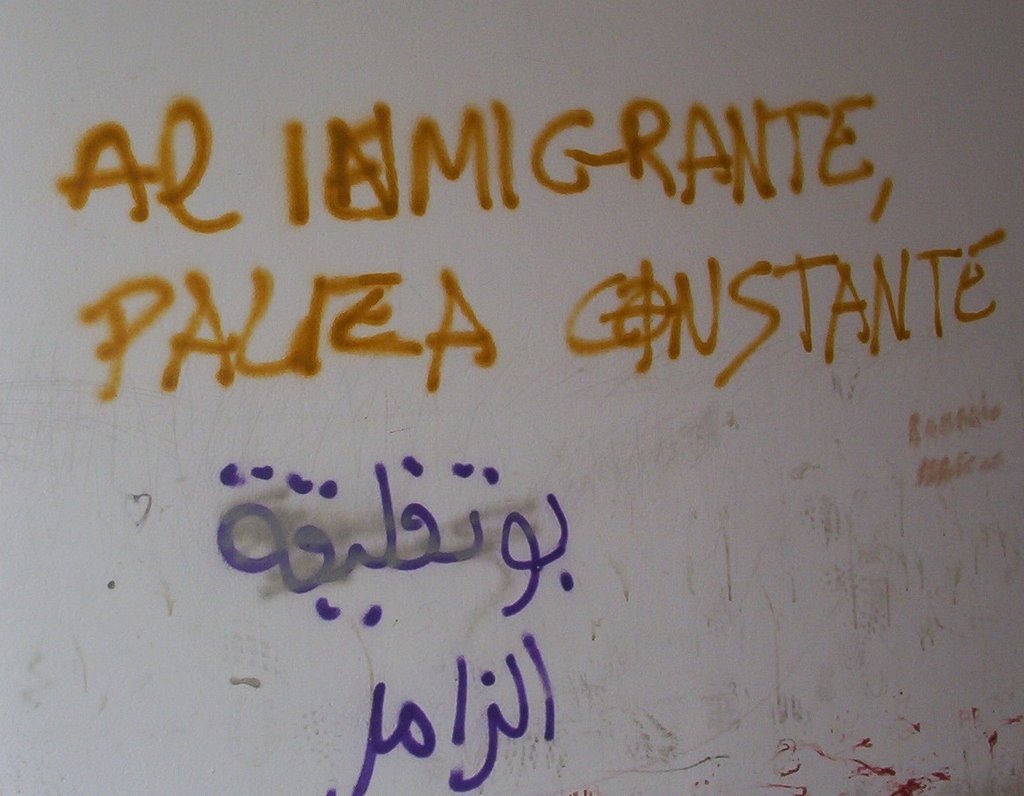 AL INMIGRANTE,
PALIZA CONSTANTE
بوتفليقة
الزامل